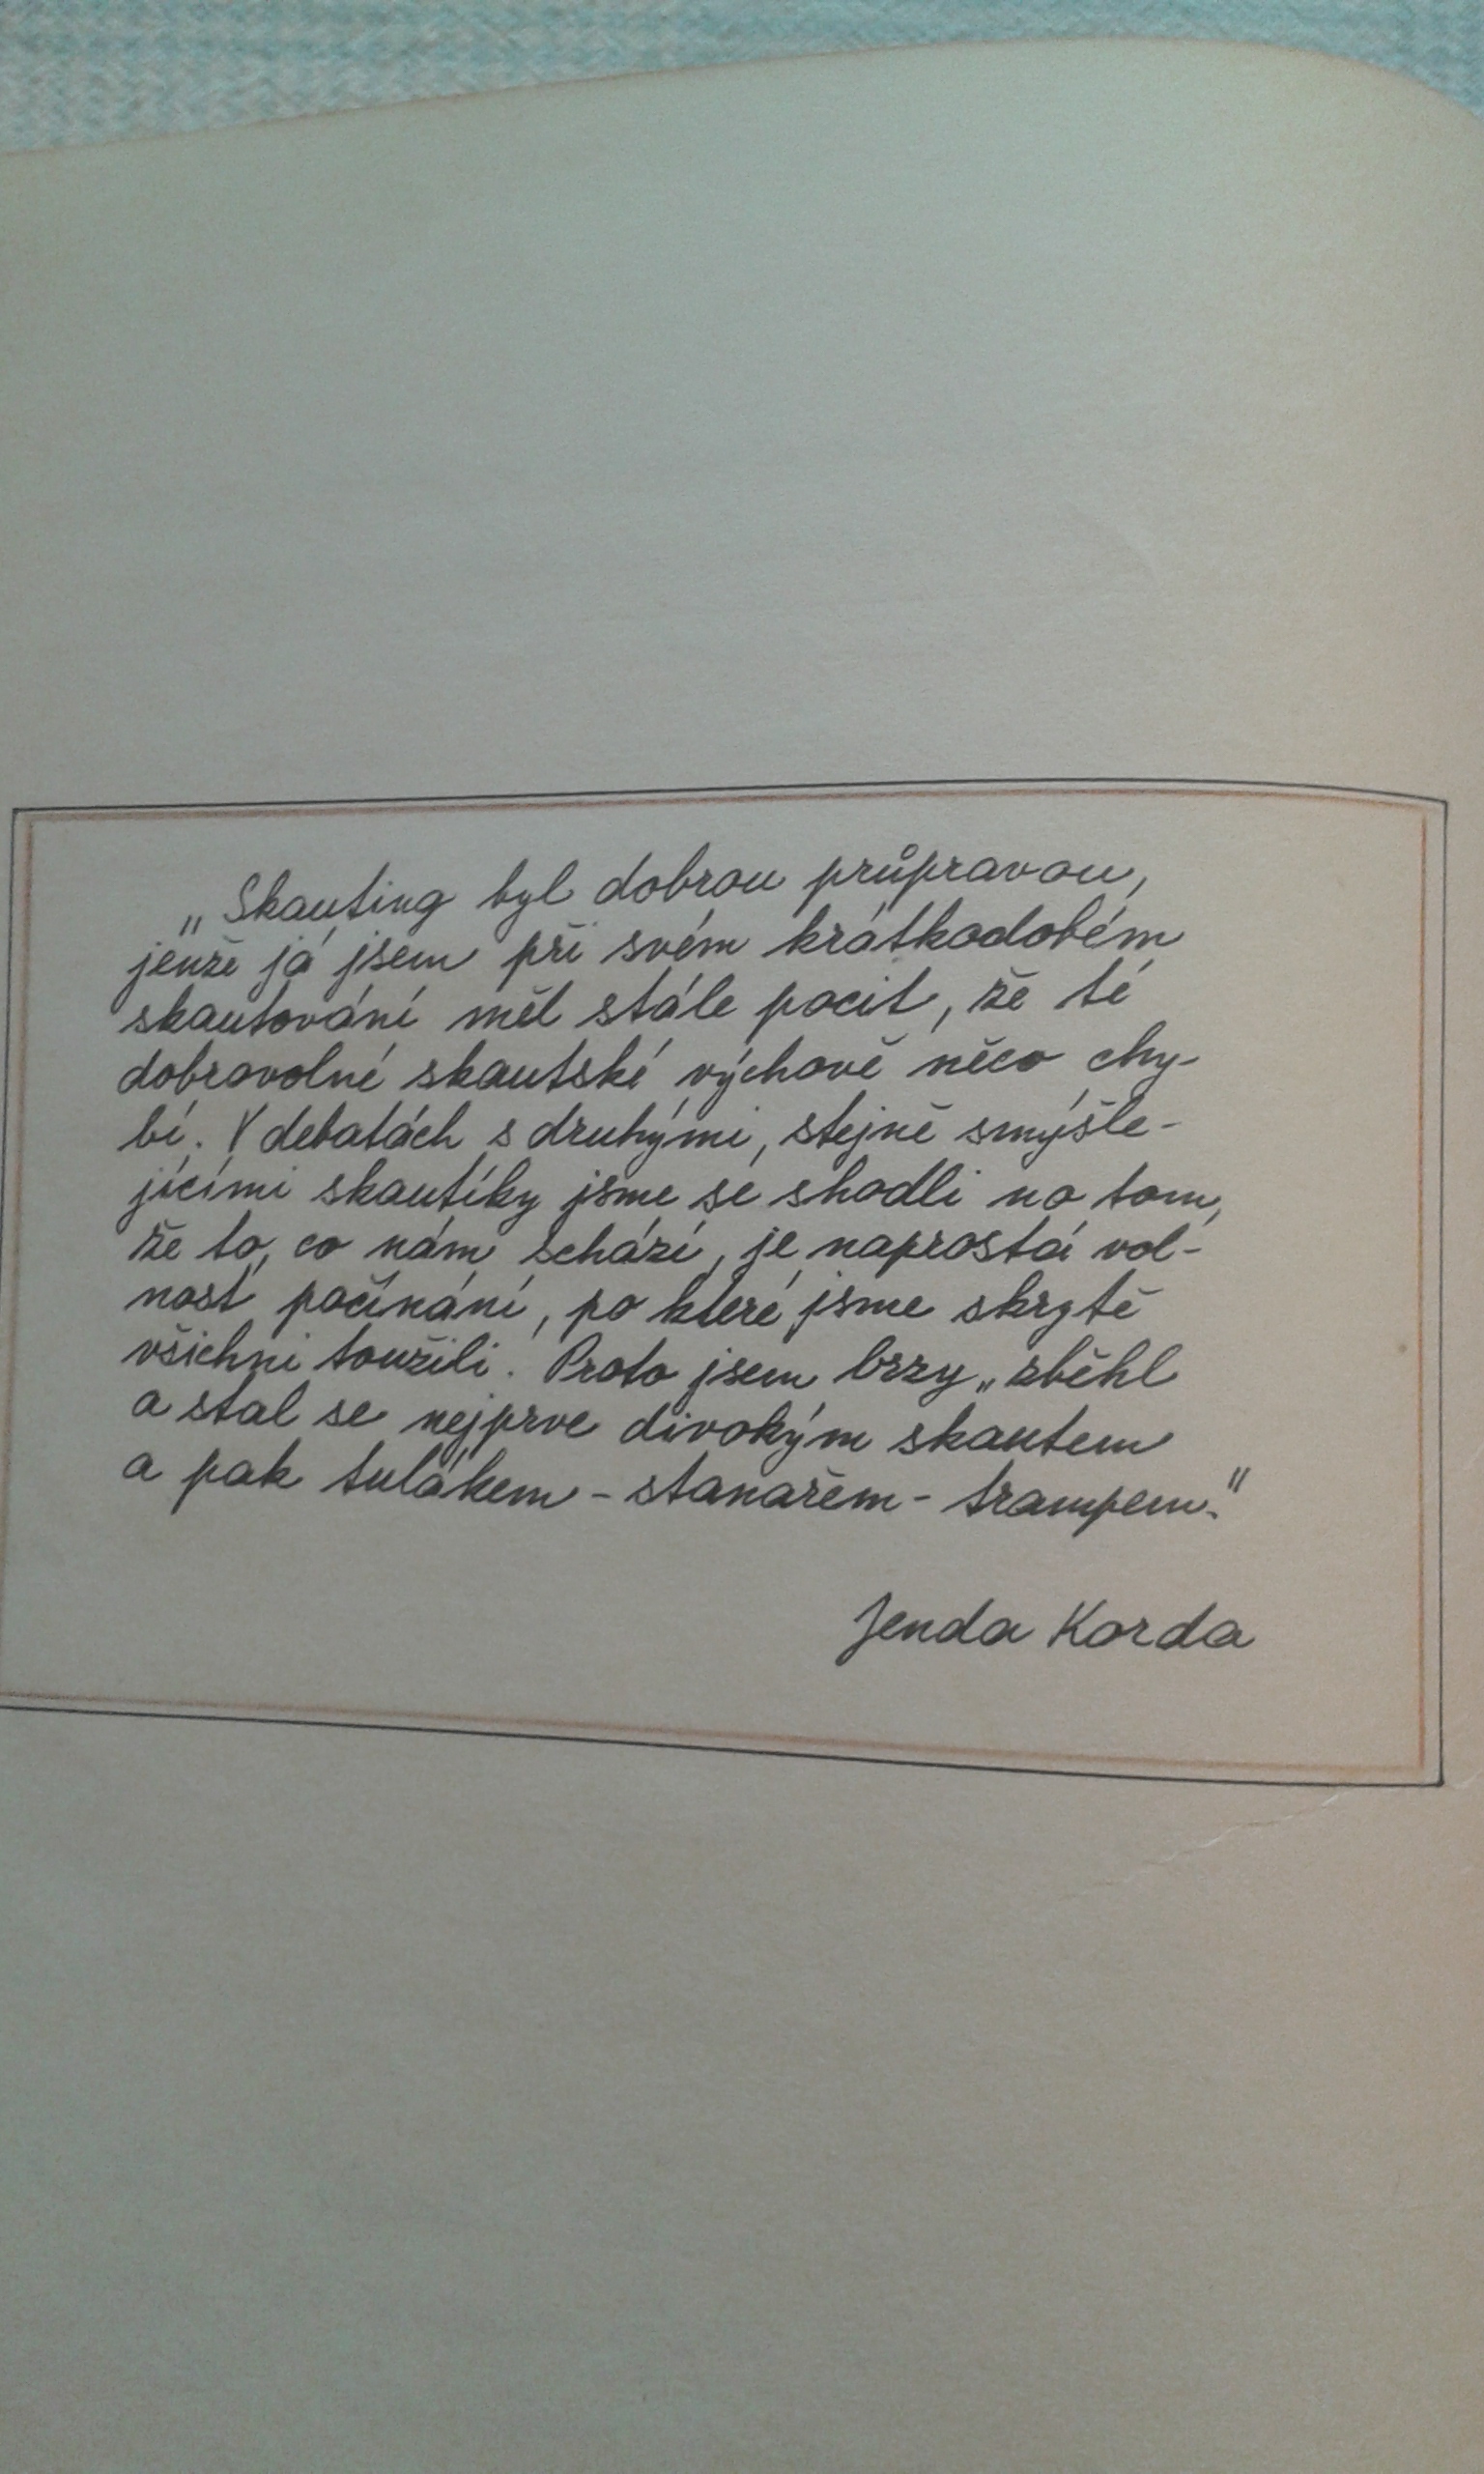 „Skauting byl dobrou průpravou,
jenže já jsem při svém krátkodobém
skautování měl stále pocit, že té
dobrovolné skautské výchově něco chy-
bí. V debatách s druhými, stejně smýšle-
jícími skautíky jsme se shodli na tom,
že to, co nám schází, je naprostá vol-
nost počínání, po které jsme skrytě
všichni toužili. Proto jsem brzy „zběhl
a stal se nejprve divokým skautem
a pak tulákem - stanařem - trampem."
Jenda Korda